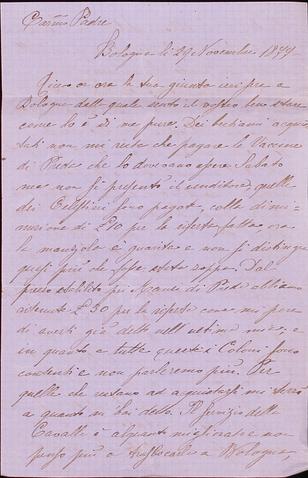 Carmo Padre
Bologna li 29 Novembre 1877
Ricevo ora la tua giunta ieri sera a
Bologna dalla quale sento il vostro bene stare
come lo è di me pure. Dei bestiami acqui
stati non mi resta che pagare le Vaccine
di Prede che lo dovevano essere Sabato
ma non si presentò il venditore, quelle
dei Celestini sono pagate, colla dimi
nuzione di £10 per la riferta fatta, ora
la manzola è guarita e non si distingue
quasi più che fosse stata zoppa. Dal
prezzo stabilito pei Manzi di Prede abbiamo
ottenuto £.30 per la riferta come mi pare
di averti già detto nell'ultima mia, e
in quanto a tutte questi i Coloni sono
contenti e non parleremo più. Per
quelle che restano ad acquistarsi mi terrò
a quanto mi hai detto. Il servizio delle
Cavalle è alquanto migliorato e non
penso più a traslocarle a Bologna